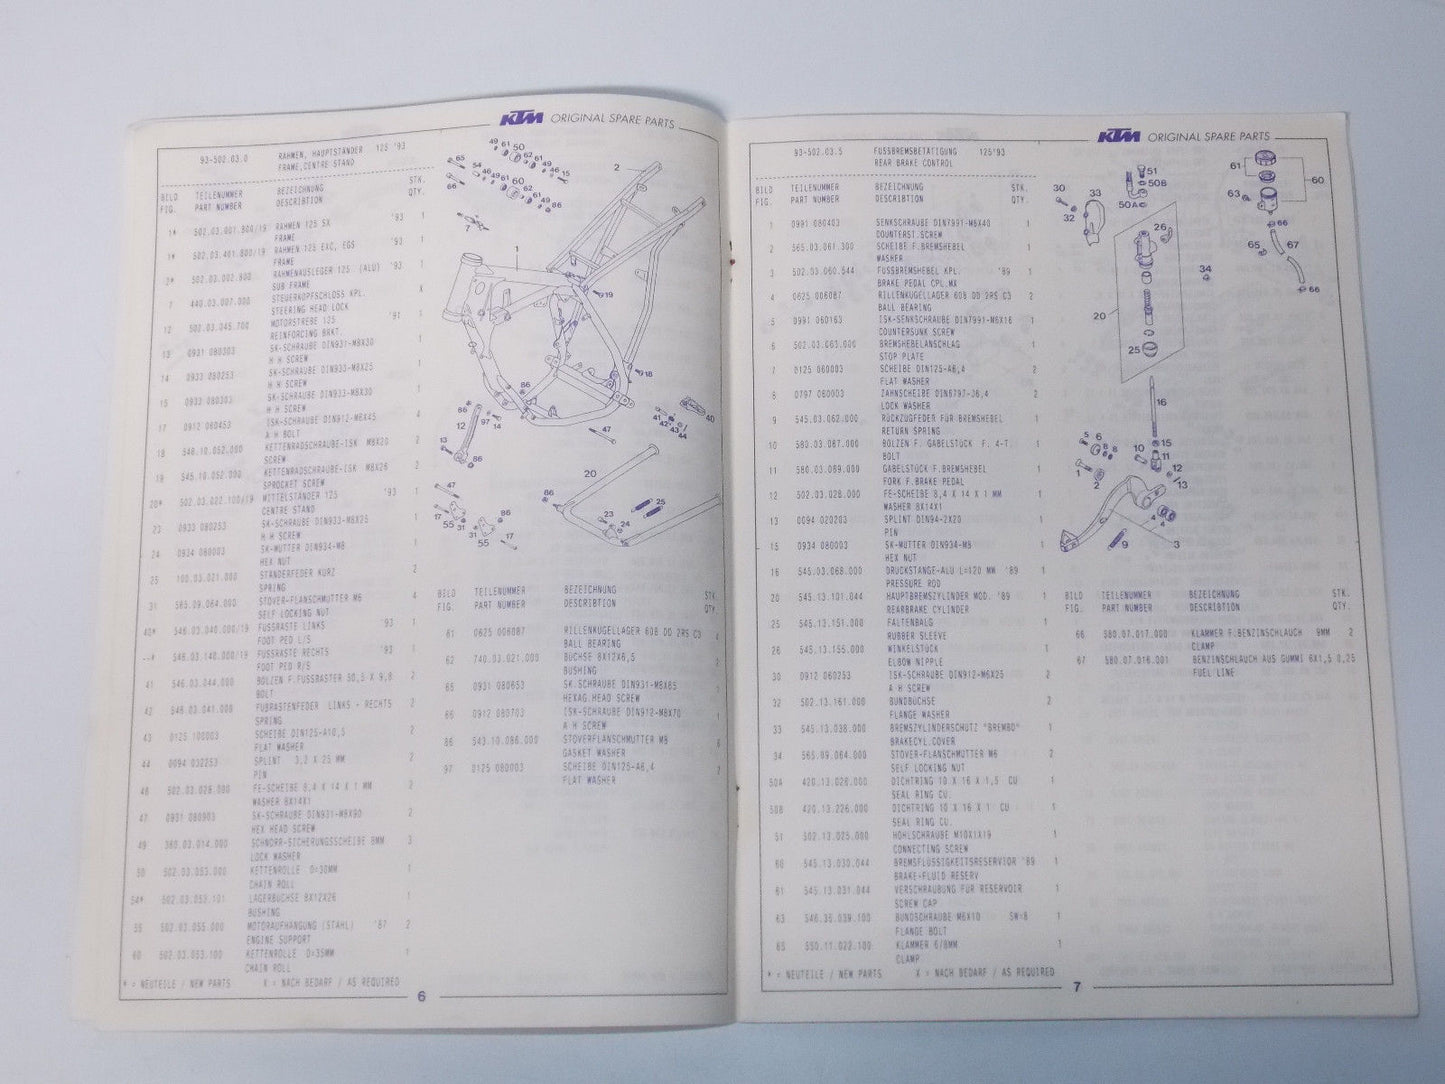 KTM ORIGINAL SPARE PARTS
93-502.03.0 RAHMEN, HAUPTSTÄNDER 125 '93
FRAME,CENTRE STAND
BILD TEILENUMMER BEZEICHNUNG STK.
FIG. PART NUMBER DESCRIBTION QTY.
1* 502.03.001.800/19 RAHMEN 125 SX '93 1
FRAME
1* 502.03.401.800/19 RAHMEN 125 EXC, EGS '93 1
FRAME
3* 502.03.002.800 RAHMENAUSLEGER 125 (ALU) '93 1
SUB FRAME
7 440.03.007.000 STEUERKOPFSCHLOSS KPL. X
STEERING HEAD LOCK
12 502.03.045.700 MOTORSTREBE 125 '91 1
REINFORCING BRKT.
13 0931 080303 SK-SCHRAUBE DIN931-M8X30 1
H H SCREW
14 0933 080253 SK-SCHRAUBE DIN933-M8X25 1
H H SCREW
15 0933 080303 SK-SCHRAUBE DIN933-M8X30 1
H H SCREW
17 0912 080453 ISK-SCHRAUBE DIN912-M8X45 4
A H BOLT
18 548.10.052.000 KETTENRADSCHRAUBE-ISK M8X20 2
SCREW
19 545.10.052.000 KETTENRADSCHRAUBE-ISK M8X26 2
SPROCKET SCREW
20* 502.03.022.100/19 MITTELSTÄNDER 125 '93 1
CENTRE STAND
23 0933 080253 SK-SCHRAUBE DIN933-M8X25 1
H H SCREW
24 0934 080003 SK-MUTTER DIN934-M8 1
HEX NUT
25 100.03.021.000 STÄNDERFEDER KURZ 2
SPRING
31 565.09.064.000 STOVER-FLANSCHMUTTER M6 4
SELF LOCKING NUT
40* 546.03.040.000/19 FUSSRASTE LINKS '93 1
FOOT PED L/S
--* 546.03.140.000/19 FUSSRASTE RECHTS '93 1
FOOT PED R/S
41 546.03.044.000 BOLZEN F.FUSSRASTER 50,5 X 9,8 2
BOLT
42 548.03.041.000 FUßRASTENFEDER LINKS - RECHTS 2
SPRING
43 0125 100003 SCHEIBE DIN125-A10,5 2
FLAT WASHER
44 0094 032253 SPLINT 3,2 X 25 MM 2
PIN
46 502.03.028.000 FE-SCHEIBE 8,4 X 14 X 1 MM 2
WASHER 8X14X1
47 0931 080903 SK-SCHRAUBE DIN931-M8X90 2
HEX HEAD SCREW
49 380.03.014.000 SCHNORR-SICHERUNGSSCHEIBE 8MM 3
LOCK WASHER
50 502.03.053.000 KETTENROLLE D=30MM 1
CHAIN ROLL
54* 502.03.053.101 LAGERBÜCHSE 8X12X26 1
BUSHING
55 502.03.055.000 MOTORAUFHÄNGUNG (STAHL) '87 2
ENGINE SUPPORT
60 502.03.053.100 KETTENROLLE D=35MM 1
CHAIN ROLL
* = NEUTEILE / NEW PARTS X = NACH BEDARF / AS REQUIRED
6
BILD TEILENUMMER BEZEICHNUNG STK.
FIG. PART NUMBER DESCRIBTION QTY.
61 0625 006087 RILLENKUGELLAGER 608 DD 2RS C3 4
BALL BEARING
62 740.03.021.000 BÜCHSE 8X12X6,5 2
BUSHING
65 0931 080853 SK.SCHRAUBE DIN931-M8X85 1
HEXAG.HEAD SCREW
66 0912 080703 ISK-SCHRAUBE DIN912-M8X70 1
A H SCREW
86 543.10.086.000 STOVERFLANSCHMUTTER M8 6
GASKET WASHER
97 0125 080003 SCHEIBE DIN125-A8,4 2
FLAT WASHER
KTM ORIGINAL SPARE PARTS
93-502.03.5 FUSSBREMSBETÄTIGUNG 125'93
REAR BRAKE CONTROL
BILD TEILENUMMER BEZEICHNUNG STK.
FIG. PART NUMBER DESCRIBTION QTY.
1 0991 080403 SENKSCHRAUBE DIN7991-M8X40 1
COUNTERST.SCREW
2 565.03.061.300 SCHEIBE F.BREMSHEBEL 1
WASHER
3 502.03.060.544 FUSSBREMSHEBEL KPL. '89 1
BRAKE PEDAL CPL.MX
4 0625 006087 RILLENKUGELLAGER 608 DD 2RS C3 2
BALL BEARING
5 0991 060163 ISK-SENKSCHRAUBE DIN7991-M6X16 1
COUNTERSUNK SCREW
6 502.03.063.000 BREMSHEBELANSCHLAG 1
STOP PLATE
7 0125 060003 SCHEIBE DIN125-A6,4 2
FLAT WASHER
8 0797 060003 ZAHNSCHEIBE DIN6797-J6,4 2
LOCK WASHER
9 545.03.062.000 RÜCKZUGFEDER FÜR BREMSHEBEL 1
RETURN SPRING
10 580.03.067.000 BOLZEN F. GABELSTÜCK F. 4-T. 1
BOLT
11 580.03.069.000 GABELSTÜCK F.BREMSHEBEL 1
FORK F.BRAKE PEDAL
12 502.03.028.000 FE-SCHEIBE 8,4 X 14 X 1 MM 1
WASHER 8X14X1
13 0094 020203 SPLINT DIN94-2X20 1
PIN
15 0934 080003 SK-MUTTER DIN934-M8 1
HEX NUT
16 545.03.068.000 DRUCKSTANGE-ALU L=120 MM '89 1
PRESSURE ROD
20 545.13.101.044 HAUPTBREMSZYLINDER MOD. '89 1
REARBRAKE CYLINDER
25 545.13.151.000 FALTENBALG 1
RUBBER SLEEVE
26 545.13.155.000 WINKELSTÜCK 1
ELBOW NIPPLE
30 0912 060253 ISK-SCHRAUBE DIN912-M6X25 2
A H SCREW
32 502.13.161.000 BUNDBÜCHSE 2
FLANGE WASHER
33 545.13.038.000 BREMSZYLINDERSCHUTZ "BREMBO" 1
BRAKECYL.COVER
34 565.09.064.000 STOVER-FLANSCHMUTTER M6 2
SELF LOCKING NUT
50A 420.13.026.000 DICHTRING 10 X 16 X 1,5 CU 1
SEAL RING CU.
50B 420.13.226.000 DICHTRING 10 X 16 X 1 CU 1
SEAL RING CU.
51 502.13.025.000 HOHLSCHRAUBE M10X1X19 1
CONNECTING SCREW
60 545.13.030.044 BREMSFLÜSSIGKEITSRESERVIOR '89 1
BRAKE-FLUID RESERV
61 545.13.031.044 VERSCHRAUBUNG FÜR RESERVOIR 1
SCREW CAP
63 546.35.039.100 BUNDSCHRAUBE M6X10 SW=8 1
FLANGE BOLT
65 550.11.022.100 KLAMMER 6/8MM 1
CLAMP
* = NEUTEILE / NEW PARTS X = NACH BEDARF / AS REQUIRED
7
BILD TEILENUMMER BEZEICHNUNG STK.
FIG. PART NUMBER DESCRIBTION QTY.
66 580.07.017.000 KLAMMER F.BENZINSCHLAUCH 9MM 2
CLAMP
67 580.07.016.001 BENZINSCHLAUCH AUS GUMMI 6X1,5 0,25
FUEL LINE